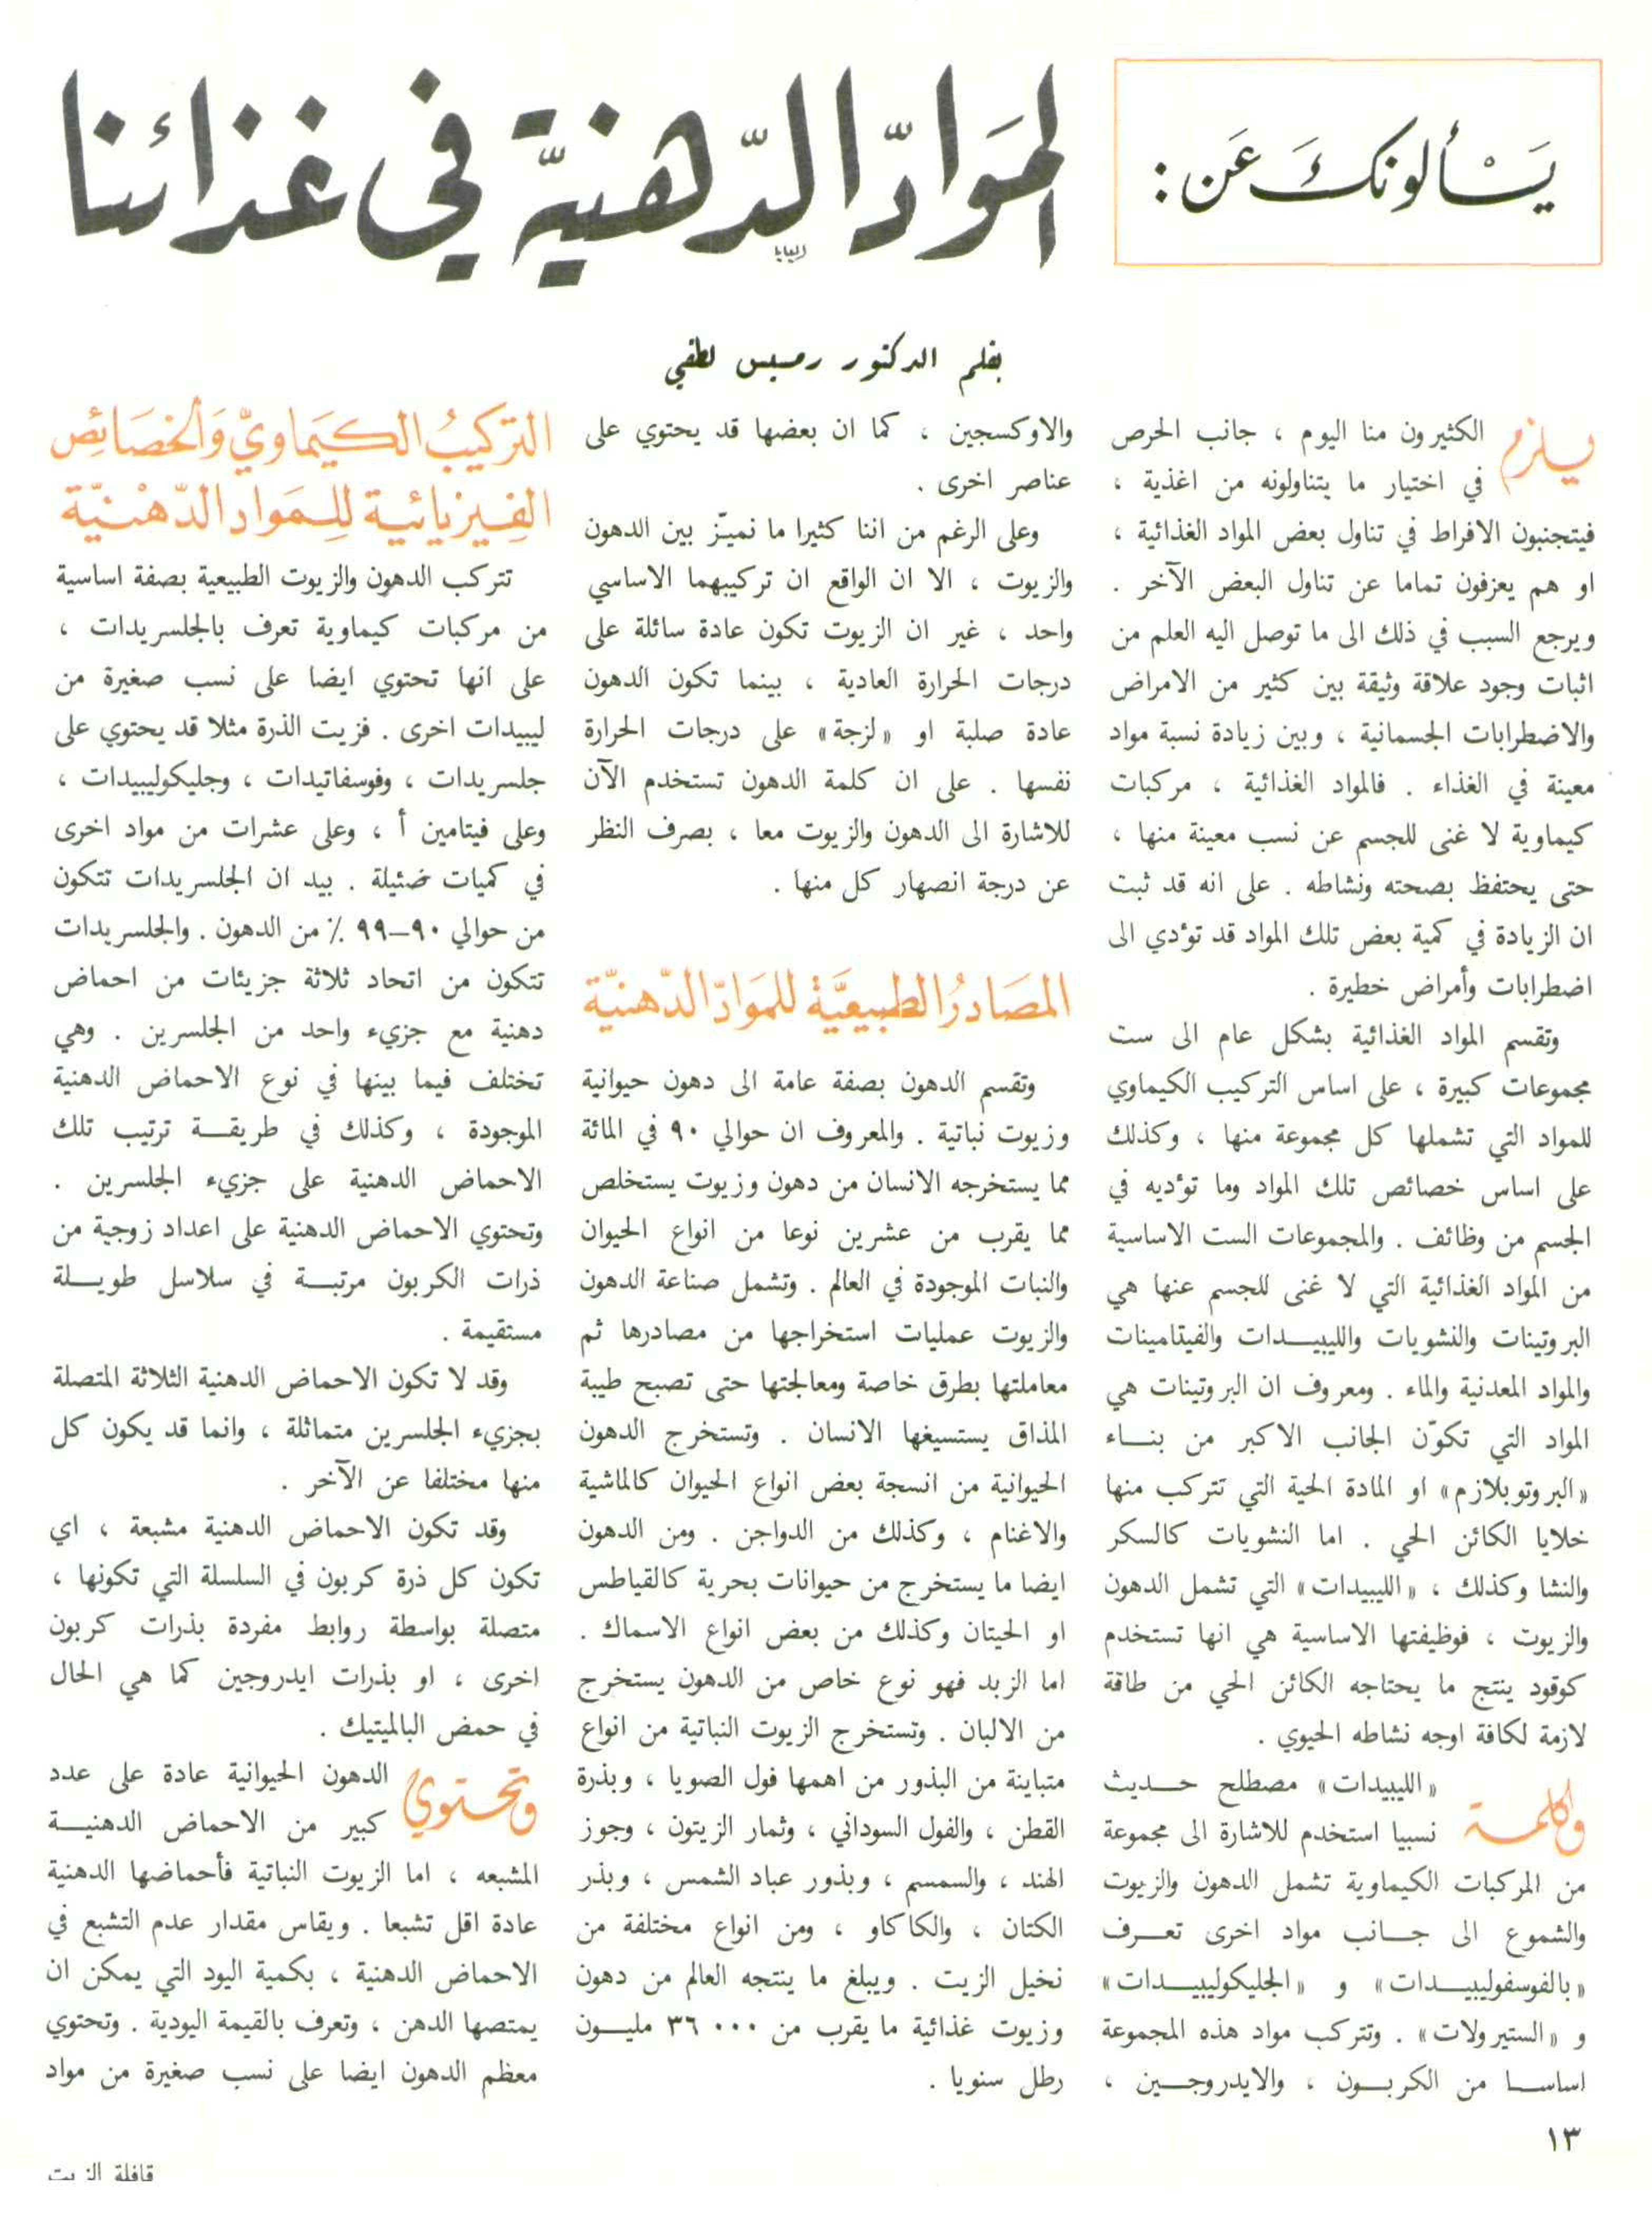 يَسْألونكَ عَن :
المَوَادّ الدّهنيَّة في غذائنا
بقلم الدكتور رمسيس لطفي
يلزم الكثيرون منا اليوم ، جانب الحرص
في اختيار ما يتناولونه من اغذية ،
فيتجنبون الافراط في تناول بعض المواد الغذائية ،
او هم يعزفون تماما عن تناول البعض الآخر .
ويرجع السبب في ذلك الى ما توصل اليه العلم من
اثبات وجود علاقة وثيقة بين كثير من الامراض
والاضطرابات الجسمانية ، وبين زيادة نسبة مواد
معينة في الغذاء . فالمواد الغذائية ، مركبات
كيماوية لا غنى للجسم عن نسب معينة منها ،
حتى يحتفظ بصحته ونشاطه . على انه قد ثبت
ان الزيادة في كمية بعض تلك المواد قد تؤدي الى
اضطرابات وأمراض خطيرة .
وتقسم المواد الغذائية بشكل عام الى ست
مجموعات كبيرة ، على اساس التركيب الكيماوي
للمواد التي تشملها كل مجموعة منها ، وكذلك
على اساس خصائص تلك المواد وما تؤديه في
الجسم من وظائف . والمجموعات الست الاساسية
من المواد الغذائية التي لا غنى للجسم عنها هي
البروتينات والنشويات والليبيدات والفيتامينات
والمواد المعدنية والماء . ومعروف ان البروتينات هي
المواد التي تكوّن الجانب الاكبر من بناء
«البروتوبلازم» او المادة الحية التي تتركب منها
خلايا الكائن الحي . اما النشويات كالسكر
والنشا وكذلك ، «الليبيدات» التي تشمل الدهون
والزيوت ، فوظيفتها الاساسية هي انها تستخدم
كوقود ينتج ما يحتاجه الكائن الحي من طاقة
لازمة لكافة اوجه نشاطه الحيوي .
وكلمة «الليبيدات» مصطلح حديث
نسبيا استخدم للاشارة الى مجموعة
من المركبات الكيماوية تشمل الدهون والزيوت
والشموع الى جانب مواد اخرى تعرف
«بالفوسفوليبيدات» و «الجليكوليبيدات»
و «الستيرولات» . وتتركب مواد هذه المجموعة
اساسا من الكربون ، والايدروجين ،
والاوكسجين ، كما ان بعضها قد يحتوي على
عناصر اخرى .
وعلى الرغم من اننا كثيرا ما نميّز بين الدهون
والزيوت ، الا ان الواقع ان تركيبهما الاساسي
واحد ، غير ان الزيوت تكون عادة سائلة على
درجات الحرارة العادية ، بينما تكون الدهون
عادة صلبة او «لزجة» على درجات الحرارة
نفسها . على ان كلمة الدهون تستخدم الآن
للاشارة الى الدهون والزيوت معا ، بصرف النظر
عن درجة انصهار كل منها .
المصَادرُ الطبيعيَّة للمَوادّ الدّهنيّة
وتقسم الدهون بصفة عامة الى دهون حيوانية
وزيوت نباتية . والمعروف ان حوالي ٩٠ في المائة
مما يستخرجه الانسان من دهون وزيوت يستخلص
مما يقرب من عشرين نوعا من انواع الحيوان
والنبات الموجودة في العالم . وتشمل صناعة الدهون
والزيوت عمليات استخراجها من مصادرها ثم
معاملتها بطرق خاصة ومعالجتها حتى تصبح طيبة
المذاق يستسيغها الانسان . وتستخرج الدهون
الحيوانية من انسجة بعض انواع الحيوان كالماشية
والاغنام ، وكذلك من الدواجن . ومن الدهون
ايضا ما يستخرج من حيوانات بحرية كالقياطس
او الحيتان وكذلك من بعض انواع الاسماك .
اما الزبد فهو نوع خاص من الدهون يستخرج
من الالبان . وتستخرج الزيوت النباتية من انواع
متباينة من البذور من اهمها فول الصويا ، وبذرة
القطن ، والفول السوداني ، وثمار الزيتون ، وجوز
الهند ، والسمسم ، وبذور عباد الشمس ، وبذر
الكتان ، والكاكاو ، ومن انواع مختلفة من
نخيل الزيت . ويبلغ ما ينتجه العالم من دهون
وزيوت غذائية ما يقرب من ٣٦٠٠٠ مليون
رطل سنويا .
التركيبُ الكيَماويّ وَالخصَائِص
الفِيزيائية لِلمَواد الدّهْنيّة
تتركب الدهون والزيوت الطبيعية بصفة اساسية
من مركبات كيماوية تعرف بالجلسريدات ،
على انها تحتوي ايضا على نسب صغيرة من
ليبيدات اخرى . فزيت الذرة مثلا قد يحتوي على
جلسريدات ، وفوسفاتيدات ، وجليكوليبيدات ،
وعلى فيتامين أ ، وعلى عشرات من مواد اخرى
في كميات ضئيلة . بيد ان الجلسريدات تتكون
من حوالي ٩٠–٩٩ ٪ من الدهون . والجلسريدات
تتكون من اتحاد ثلاثة جزيئات من احماض
دهنية مع جزيء واحد من الجلسرين . وهي
تختلف فيما بينها في نوع الاحماض الدهنية
الموجودة ، وكذلك في طريقة ترتيب تلك
الاحماض الدهنية على جزيء الجلسرين .
وتحتوي الاحماض الدهنية على اعداد زوجية من
ذرات الكربون مرتبة في سلاسل طويلة
مستقيمة .
وقد لا تكون الاحماض الدهنية الثلاثة المتصلة
بجزيء الجلسرين متماثلة ، وانما قد يكون كل
منها مختلفا عن الآخر .
وقد تكون الاحماض الدهنية مشبعة ، اي
تكون كل ذرة كربون في السلسلة التي تكونها ،
متصلة بواسطة روابط مفردة بذرات كربون
اخرى ، او بذرات ايدروجين كما هي الحال
في حمض البالميتيك .
وتحتوي الدهون الحيوانية عادة على عدد
كبير من الاحماض الدهنية
المشبعه ، اما الزيوت النباتية فأحماضها الدهنية
عادة اقل تشبعا . ويقاس مقدار عدم التشبع في
الاحماض الدهنية ، بكمية اليود التي يمكن ان
يمتصها الدهن ، وتعرف بالقيمة اليودية . وتحتوي
معظم الدهون ايضا على نسب صغيرة من مواد
١٣
قافلة الزيت